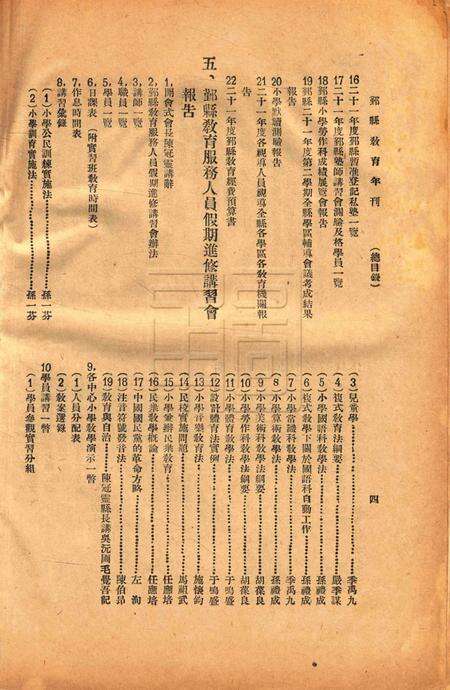 鄞縣教育年刊 （總目錄） 四
16 二十一年度鄞縣暫准登記私塾一覽
17 二十一年度鄞縣塾師講習會測驗及格學員一覽
18 鄞縣小學勞作科成績展覽會報告
19 鄞縣二十一年度第二學期全縣學區輔導會議考成結果
報告
20 小學默讀測驗報告
21 二十一年度各視導人員視導全縣各學區各教育機關報
告
22 二十一年度鄞縣教育經費預算書
五、鄞縣教育服務人員假期進修講習會
報告
1, 開會式會長陳冠靈講辭
2, 鄞縣教育服務人員假期進修講習會辦法
3, 講師一覽
4, 職員一覽
5, 學員一覽
6, 日課表（附實習班教育時間表）
7, 作息時間表
8, 講習彙錄
（1）小學公民訓練實施法……孫一芬
（2）小學訓育實施法……孫一芬
（3）兒童學……季禹九
（4）複式教學法綱要……嚴季謀
（5）小學國語科教學法……孫禮成
（6）複式教學下關於國語科自動工作……孫禮成
（7）小學常識科教學法……季禹九
（8）小學算術教學法……孫禮成
（9）小學美術科教學法綱要……胡葆良
（10）小學勞作科教學法綱要……胡葆良
（11）小學體育教學法……于鳴盛
（12）設計體育方法實例……于鳴盛
（13）小學音樂教育法……施懷鈞
（14）民校實施問題……馬韻武
（15）小學兼辦民衆教育……任應培
（16）民衆教學概論……任應培
（17）中國國民黨的革命方略……左洵
（18）注音符號發音法……陳伯昂
（19）教育與自治……陳冠靈縣長講吳沅岡毛覺吾記
9, 各中心小學教學演示一幣
（1）人員分配表
（2）教案選錄
10 學員講習一幣
（1）學員參觀實習分組